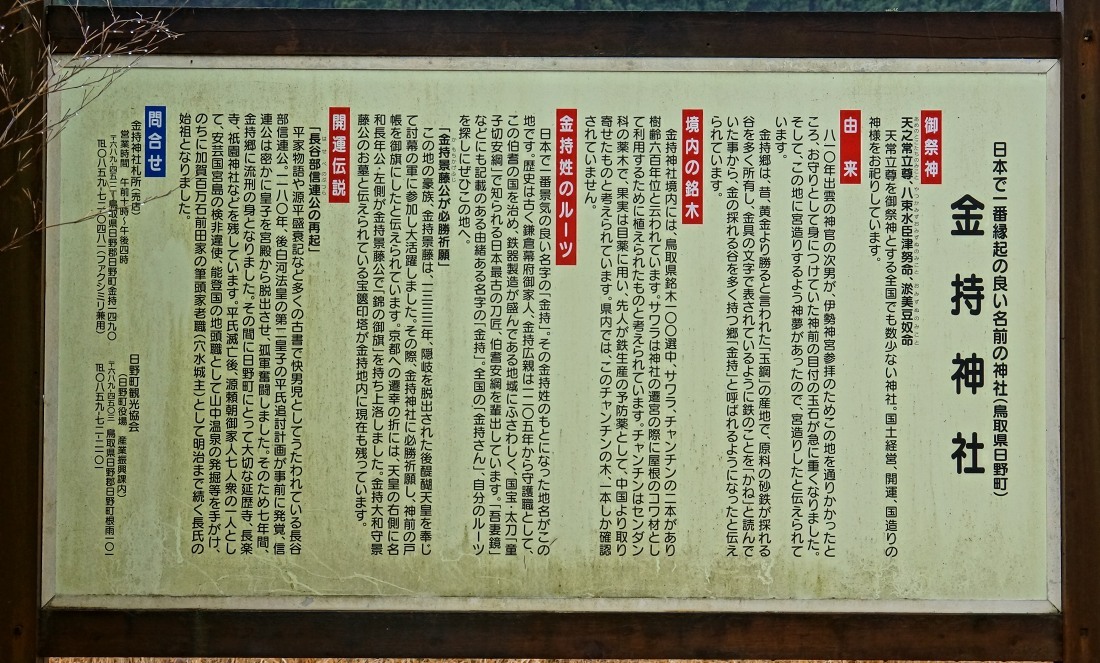 日本で一番縁起の良い名前の神社(鳥取県日野町)
金持神社
御祭神
天之常立尊、八束水臣津努命、淤美豆奴命
天常立尊を御祭神とする全国でも数少ない神社。国土経営、開運、国造りの
神様をお祀りしています。
由来
八一〇年出雲の神官の次男が、伊勢神宮参拝のためこの地を通りかかったと
ころ、お守りとして身につけていた神前の目付の玉石が急に重くなりました。
そして、この地に宮造りするよう神夢があったので、宮造りしたと伝えられて
います。
金持郷は、昔、黄金より勝ると言われた「玉鋼」の産地で、原料の砂鉄が採れる
谷を多く所有し、金具の文字で表されているように鉄のことを「かね」と読んで
いた事から、金の採れる谷を多く持つ郷「金持」と呼ばれるようになったと伝え
られています。
境内の銘木
金持神社境内には、鳥取県銘木一〇〇選中、サワラ、チャンチンの二本があり
樹齢六百年位と云われています。サワラは神社の遷宮の際に屋根のコワ材とし
て利用するために植えられたものと考えられています。チャンチンはセンダン
科の薬木で、果実は目薬に用い、先人が鉄生産の予防薬として、中国より取り
寄せたものと考えられています。県内では、このチャンチンの木、一本しか確認
されていません。
金持姓のルーツ
日本で一番景気の良い名字の「金持」。その金持姓のもとになった地名がこの
地です。歴史は古く鎌倉幕府御家人、金持広親は一二〇五年から守護職として、
この伯耆の国を治め、鉄器製造が盛んである地域にふさわしく、国宝・太刀「童
子切安綱」で知られる日本最古の刀匠、伯耆安綱を輩出しています。「吾妻鏡」
などにも記載のある由緒ある名字の「金持」。全国の「金持さん」、自分のルーツ
を探しにぜひこの地へ。
「金持景藤公が必勝祈願」
この地の豪族、金持景藤は、一三三三年、隠岐を脱出された後醍醐天皇を奉じ
て討幕の軍に参加し大活躍しました。その際、金持神社に必勝祈願し、神前の戸
帳を御旗にしたと伝えられています。京都への遷幸の折には、天皇の右側に名
和長年公・左側が金持景藤公で「錦の御旗」を持ち上洛しました。金持大和守景
藤公のお墓と伝えられている宝篋印塔が金持地内に現在も残っています。
開運伝説
「長谷部信連公の再起」
平家物語や源平盛衰記など多くの古書で快男児としてうたわれている長谷
部信連公。一一八〇年、後白河法皇の第二皇子の平氏追討計画が事前に発覚、信
連公は密かに皇子を宮殿から脱出させ、孤軍奮闘しました。そのため七年間、
金持郷に流刑の身となりました。その間に日野町にとって大切な延暦寺、長楽
寺、祇園神社などを残しています。平氏滅亡後、源頼朝御家人七人衆の一人とし
て、安芸国宮島の検非違使、能登国の地頭職として山中温泉の発掘等を手がけ、
のちに加賀百万石前田家の筆頭家老職(穴水城主)として明治まで続く長氏の
始祖となりました。
問合せ
金持神社札所(売店)
営業時間 午前十時~午後四時
〒六八九-四五一二 鳥取県日野郡日野町金持一四九〇
℡〇八五九-七二-〇四八一(ファクシミリ兼用)
日野町観光協会
(日野町役場 産業振興課内)
〒六八九-四五〇三 鳥取県日野郡日野町根雨一〇一
℡〇八五九-七二-二一〇一